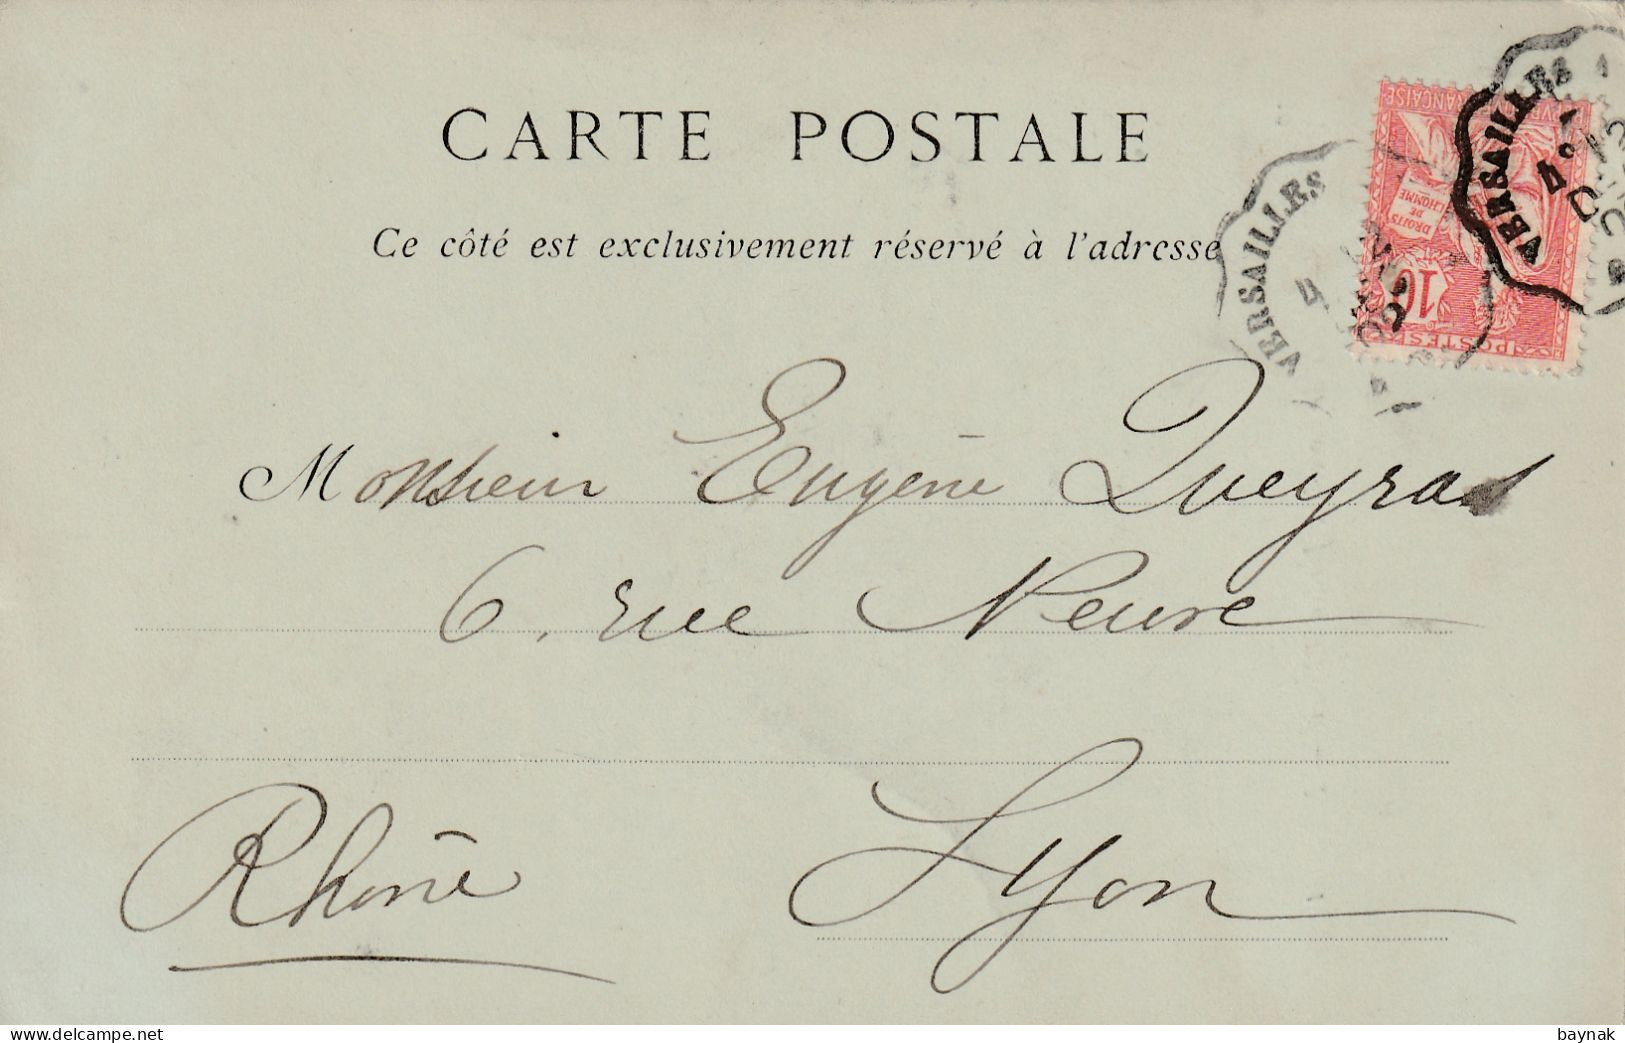 CARTE POSTALE
Ce côté est exclusivement réservé à l'adresse
FRANÇAISE
DROITS DE L'HOMME
10
POSTES
VERSAILLES
4
VERSAILLES
4
Monsieur Eugène Queyras
6, rue Neuve
Lyon
Rhône
delcampe.net
baynak